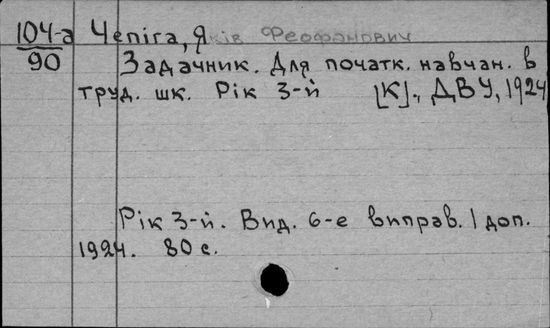 104-а Чепіга, Яків Феофанович
90 Задачник. Для початк. навчан. в
труд. шк. Рік 3-й [К]., ДВУ, 1924
Рік 3-й. Вид. 6-е виправ. і доп.
1924. 80 с.